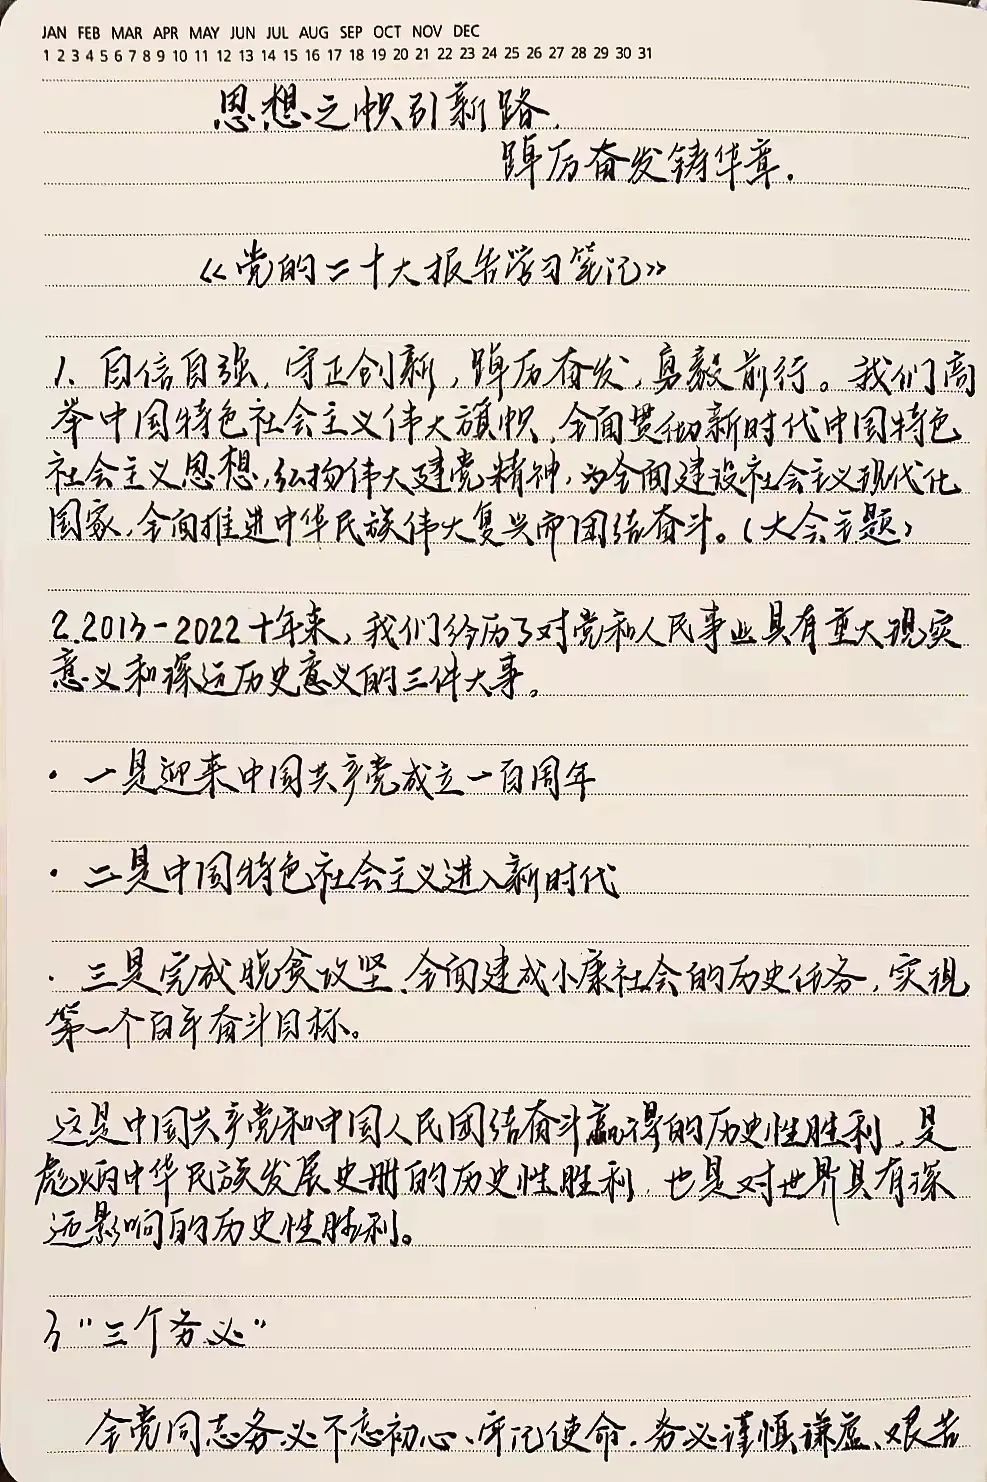 JAN FEB MAR APR MAY JUN JUL AUG SEP OCT NOV DEC
1 2 3 4 5 6 7 8 9 10 11 12 13 14 15 16 17 18 19 20 21 22 23 24 25 26 27 28 29 30 31
思想之帜引新路.
踔厉奋发铸华章.
《党的二十大报告学习笔记》
1. 自信自强,守正创新,踔厉奋发,勇毅前行。我们高
举中国特色社会主义伟大旗帜,全面贯彻新时代中国特色
社会主义思想,弘扬伟大建党精神,为全面建设社会主义现代化
国家,全面推进中华民族伟大复兴而团结奋斗。(大会主题)
2.2013-2022十年来,我们经历了对党和人民事业具有重大现实
意义和深远历史意义的三件大事。
· 一是迎来中国共产党成立一百周年
· 二是中国特色社会主义进入新时代
· 三是完成脱贫攻坚、全面建成小康社会的历史任务,实现
第一个百年奋斗目标。
这是中国共产党和中国人民团结奋斗赢得的历史性胜利,是
彪炳中华民族发展史册的历史性胜利,也是对世界具有深
远影响的历史性胜利。
3 "三个务必"
全党同志务必不忘初心、牢记使命,务必谨慎谦虚、艰苦